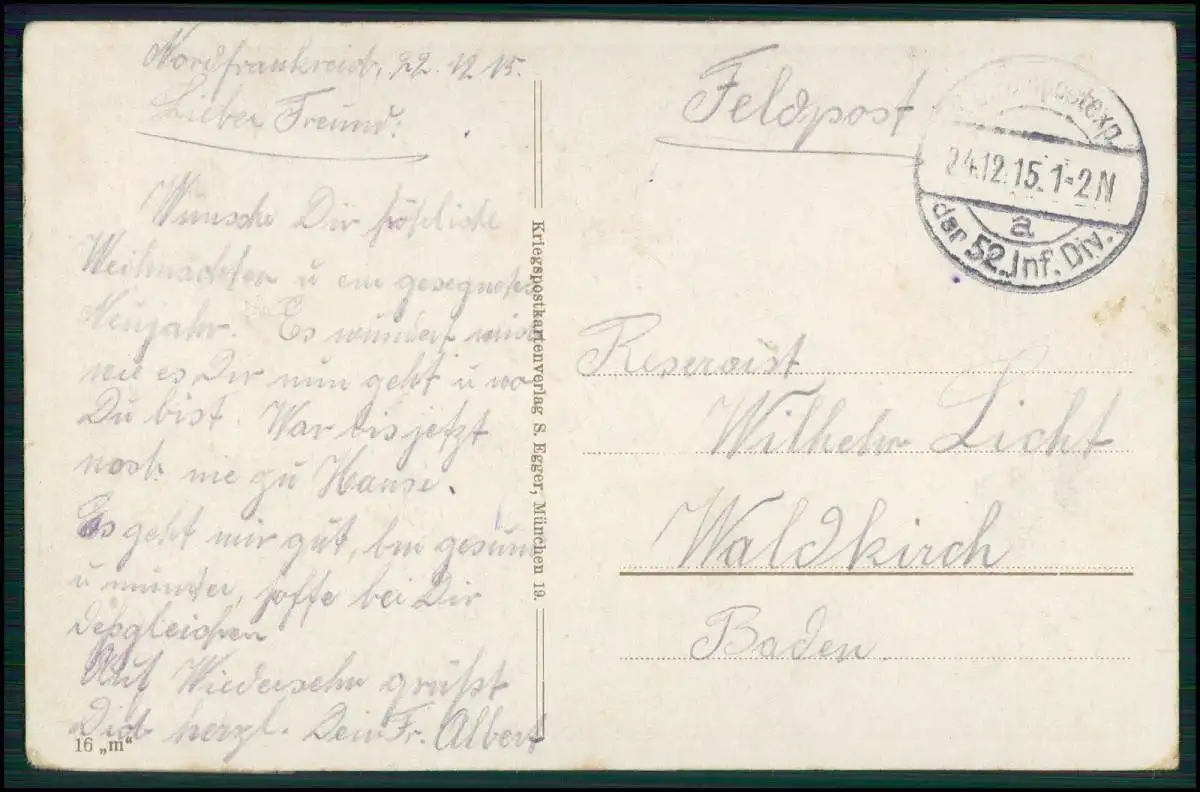 Nordfrankreich, 22.12.15.
Lieber Freund!
Wünsche Dir fröhliche
Weihnachten u ein gesegnetes
Neujahr. Es wundert mich
wie es Dir nun geht u wo
Du bist. War bis jetzt
noch nie zu Hause.
Es geht mir gut, bin gesund
u munter, hoffe bei Dir
desgleichen
Auf Wiedersehn grüßt
Dich herzl. Dein Fr. Albert
16 „m“
Kriegspostkartenverlag S. Egger, München 19.
Feldpost
24.12.15. 1-2N
a
der 52. Inf. Div.
Reservist
Wilhelm Licht
Waldkirch
Baden.